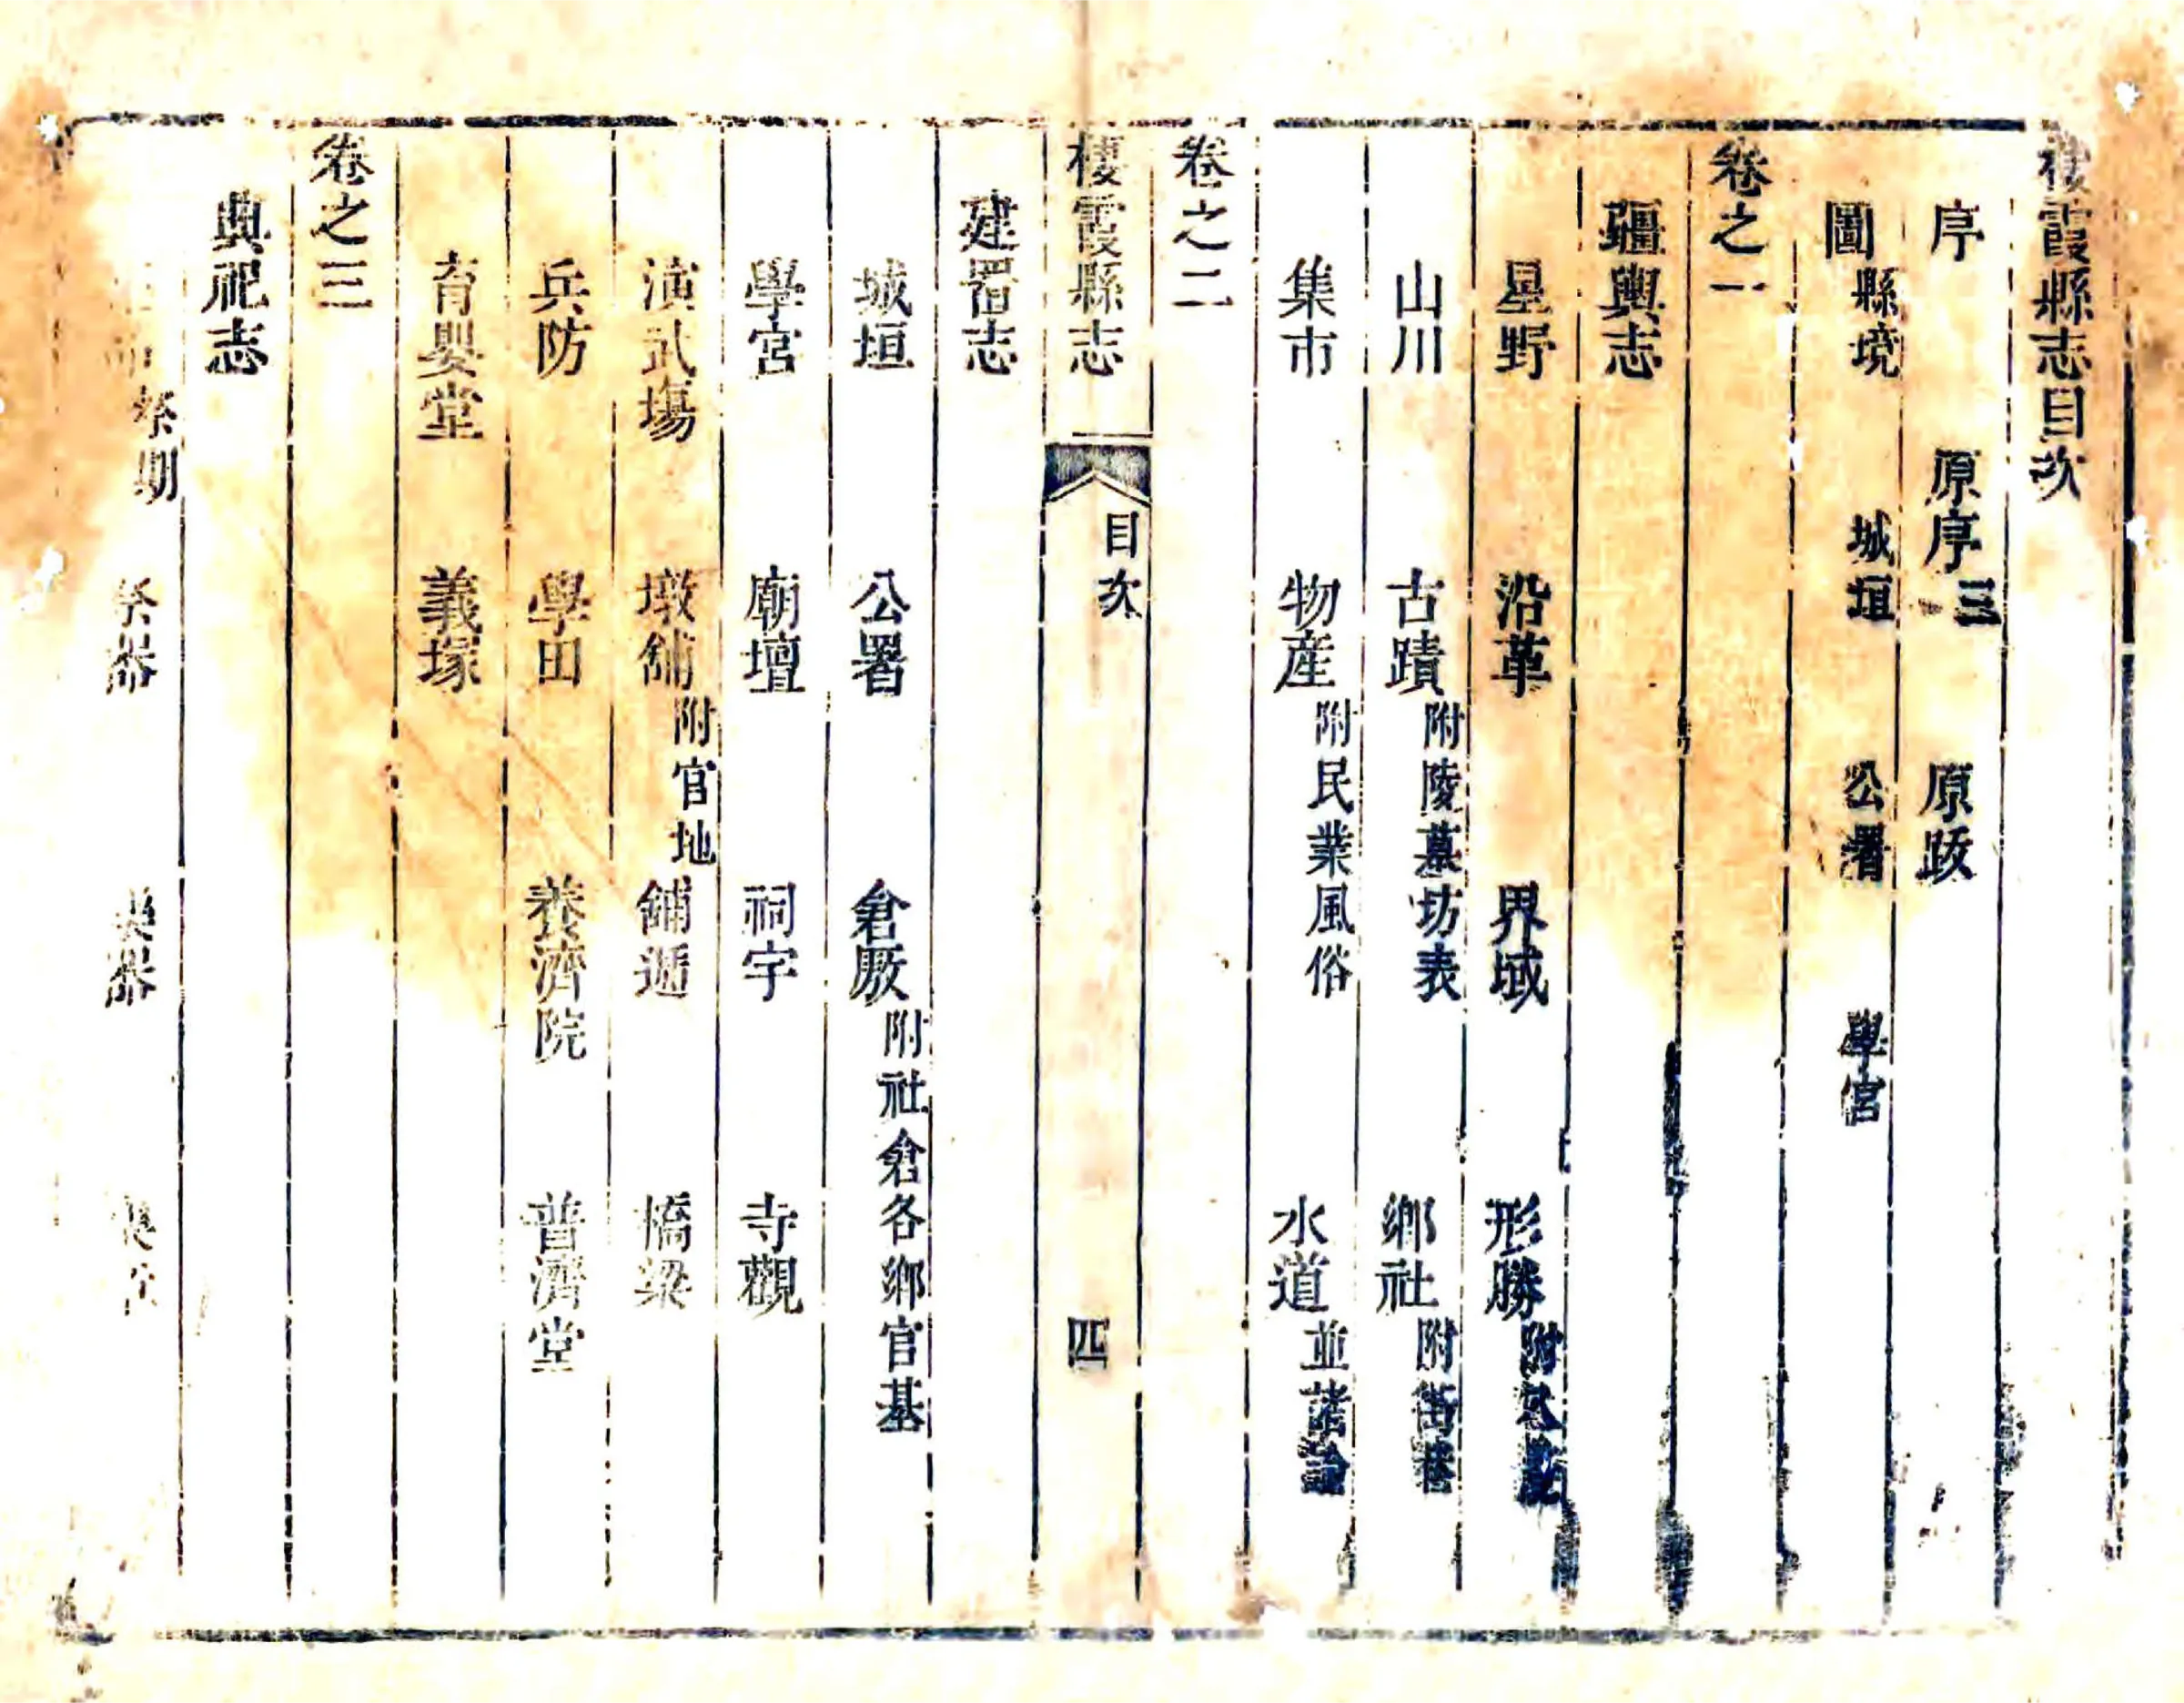 棲霞縣志目次
序 原序三 原跋
圖 縣境 城垣 公署 學宮
卷之一
疆輿志
星野 沿革 界域 形勝附八景
山川 古蹟附陵墓坊表 鄉社附街巷
集市 物産附民業風俗 水道並諸論
卷之二
棲霞縣志 目次 四
建置志
城垣 公署 倉厫附社倉各鄉官基
學宮 廟壇 祠宇 寺觀
演武塲 墩舖附官地 舖遞 橋梁
兵防 學田 養濟院 普濟堂
育嬰堂 義塚
卷之三
典祀志
祭期 祭器 樂器